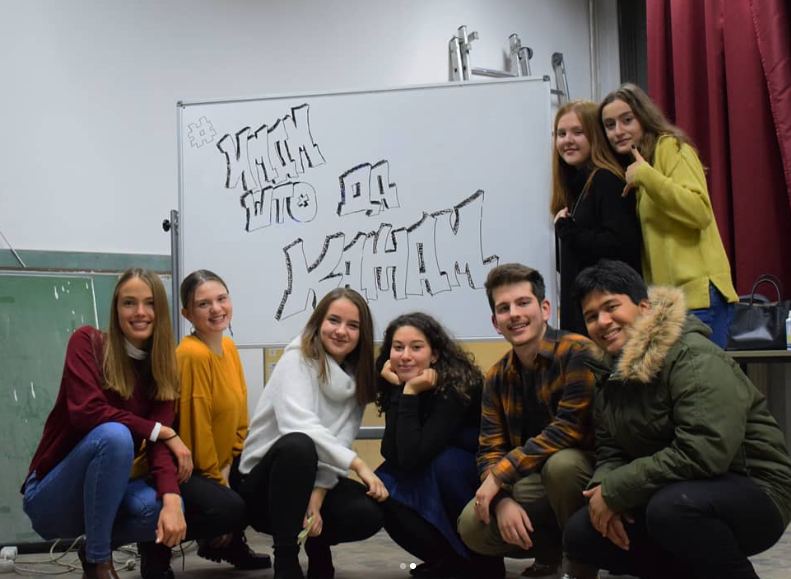 #ИМАМ
ШТО ДА
КАЖАМ